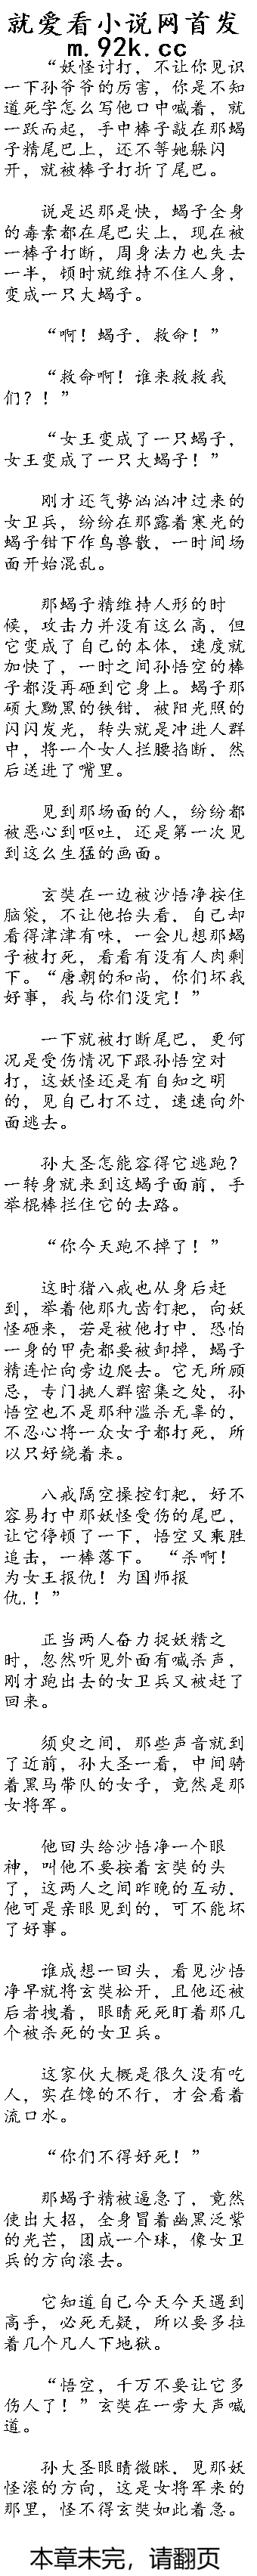 就爱看小说网首发
m.92k.cc
“妖怪讨打，不让你见识
一下孙爷爷的厉害，你是不知
道死字怎么写他口中喊着，就
一跃而起，手中棒子敲在那蝎
子精尾巴上，还不等她躲闪
开，就被棒子打折了尾巴。
说是迟那是快，蝎子全身
的毒素都在尾巴尖上，现在被
一棒子打断，周身法力也失去
一半，顿时就维持不住人身，
变成一只大蝎子。
“啊！蝎子，救命！”
“救命啊！谁来救救我
们？！”
“女王变成了一只蝎子，
女王变成了一只大蝎子！”
刚才还气势汹汹冲过来的
女卫兵，纷纷在那露着寒光的
蝎子钳下作鸟兽散，一时间场
面开始混乱。
那蝎子精维持人形的时
候，攻击力并没有这么高，但
它变成了自己的本体，速度就
加快了，一时之间孙悟空的棒
子都没再砸到它身上。蝎子那
硕大黝黑的铁钳，被阳光照的
闪闪发光，转头就是冲进人群
中，将一个女人拦腰掐断，然
后送进了嘴里。
见到那场面的人，纷纷都
被恶心到呕吐，还是第一次见
到这么生猛的画面。
玄奘在一边被沙悟净按住
脑袋，不让他抬头看，自己却
看得津津有味，一会儿想那蝎
子被打死，看看有没有人肉剩
下。“唐朝的和尚，你们坏我
好事，我与你们没完！”
一下就被打断尾巴，更何
况是受伤情况下跟孙悟空对
打，这妖怪还是有自知之明
的，见自己打不过，速速向外
面逃去。
孙大圣怎能容得它逃跑？
一转身就来到这蝎子面前，手
举棍棒拦住它的去路。
“你今天跑不掉了！”
这时猪八戒也从身后赶
到，举着他那九齿钉耙，向妖
怪砸来，若是被他打中，恐怕
一身的甲壳都要被卸掉，蝎子
精连忙向旁边爬去。它无所顾
忌，专门挑人群密集之处，孙
悟空也不是那种滥杀无辜的，
不忍心将一众女子都打死，所
以只好绕着来。
八戒隔空操控钉耙，好不
容易打中那妖怪受伤的尾巴，
让它停顿了一下，悟空又乘胜
追击，一棒落下。 “杀啊！
为女王报仇！为国师报
仇.！”
正当两人奋力捉妖精之
时，忽然听见外面有喊杀声，
刚才跑出去的女卫兵又被赶了
回来。
须臾之间，那些声音就到
了近前，孙大圣一看，中间骑
着黑马带队的女子，竟然是那
女将军。
他回头给沙悟净一个眼
神，叫他不要按着玄奘的头
了，这两人之间昨晚的互动，
他可是亲眼见到的，可不能坏
了好事。
谁成想一回头，看见沙悟
净早就将玄奘松开，且他还被
后者拽着，眼睛死死盯着那几
个被杀死的女卫兵。
这家伙大概是很久没有吃
人，实在馋的不行，才会看着
流口水。
“你们不得好死！”
那蝎子精被逼急了，竟然
使出大招，全身冒着幽黑泛紫
的光芒，团成一个球，像女卫
兵的方向滚去。
它知道自己今天今天遇到
高手，必死无疑，所以要多拉
着几个凡人下地狱。
“悟空，千万不要让它多
伤人了！”玄奘在一旁大声喊
道。
孙大圣眼睛微眯，见那妖
怪滚的方向，这是女将军来的
那里，怪不得玄奘如此着急。
本章未完，请翻页